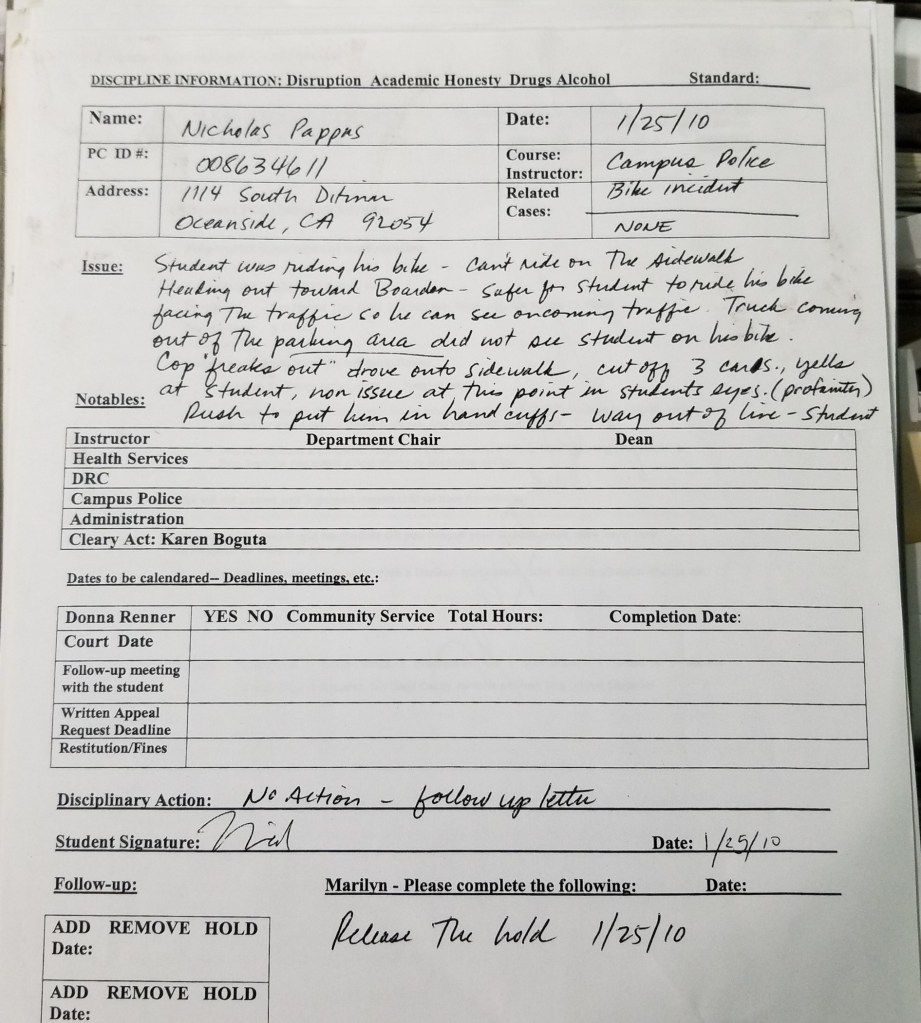 DISCIPLINE INFORMATION: Disruption Academic Honesty Drugs Alcohol Standard:
Name: Nicholas Pappas Date: 1/25/10
PC ID #: 008634611 Course: Instructor: Campus Police
Address: 1114 South Ditmar Related Cases: Bike incident
Oceanside, CA 92054 NONE
Issue: Student was riding his bike - can't ride on The sidewalk
Heading out toward - Safer for student to ride his bike
facing The traffic so he can see oncoming traffic. Truck coming
out of The parking area did not see student on his bike.
Cop "freaks out" drove onto sidewalk, cut off 3 cards., yells
at student, non issue at This point in students eyes. (profanity)
Notables: Push to put him in hand cuffs - way out of line - Student
Instructor Department Chair Dean
Health Services
DRC
Campus Police
Administration
Cleary Act: Karen Boguta
Dates to be calendared-- Deadlines, meetings, etc.:
Donna Renner YES NO Community Service Total Hours: Completion Date:
Court Date
Follow-up meeting
with the student
Written Appeal
Request Deadline
Restitution/Fines
Disciplinary Action: No Action - follow up letter
Student Signature: Date: 1/25/10
Follow-up: Marilyn - Please complete the following: Date:
ADD REMOVE HOLD
Date:
Release The hold 1/25/10
ADD REMOVE HOLD
Date: